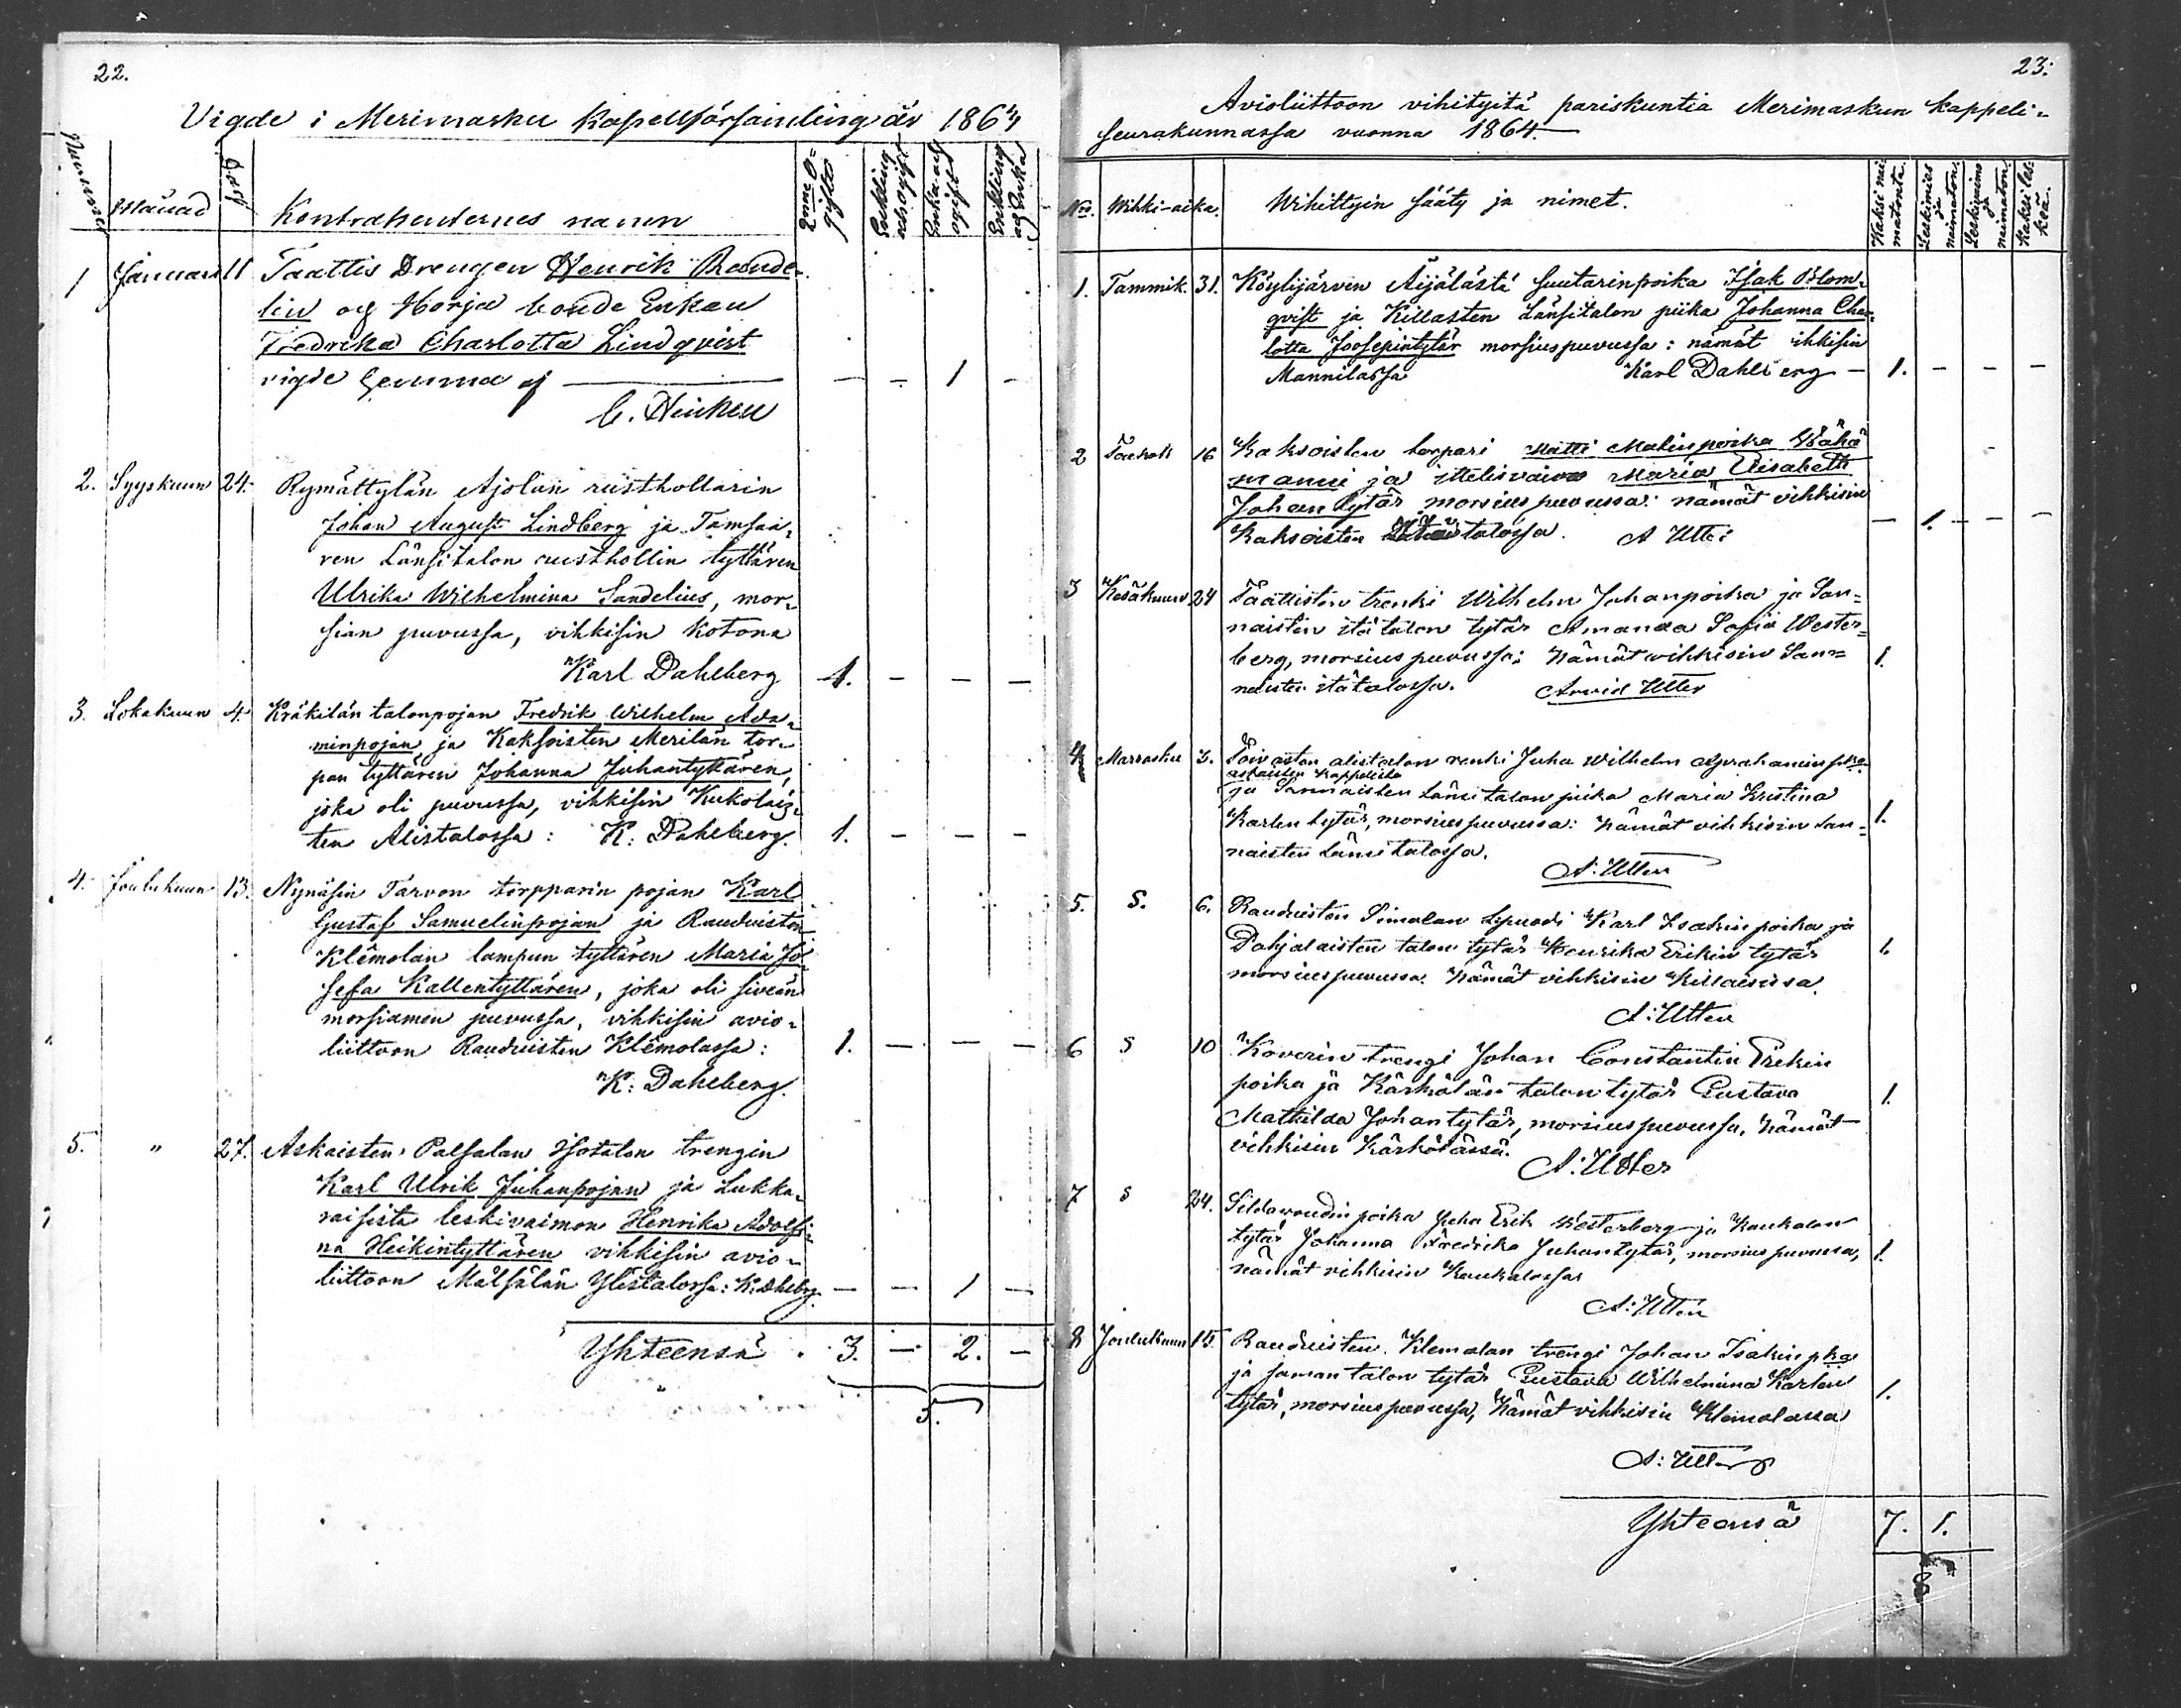 22.
Vigde i Merimasku Kapellförsamling år 1863
Nummer
Månad
Dag
Kontrahenternes namn
2nne O-
gifte
Enkling
och ogift
Enka och
ogift
Enkling
och Enka
1 Januari 11 Taattis Drengen Henrik
lin och Horja bonde Enkan
Fredrika Charlotta Lindqvist
vigde hemma af — — 1 —
2. Syyskuun 24. Rymättylän Ajolan rusthollarin
Johan August Lindberg ja Tamsaa-
ren Länsitalon rusthollin tyttären
Ulrika Wilhelmina Sandelius, mor-
sian puvussa, vihkisin kotona
Karl Dahlberg 1. — — —
3. Lokakuun 4. Kräkilän talonpojan Fredrik Wilhelm Ada-
minpojan ja Kaksoisten Merilän tor-
pan tyttären Johanna Juhantyttären,
joka oli puvussa, vihkisin Kukolais-
ten Alistalossa: K: Dahlberg. 1. — — —
4. Joulukuun 13. Nynäsin Tarvon torpparin pojan Karl
Gustaf Samuelinpojan ja Rauduisten
Klemolan lampun tyttären Maria Jo-
sefa Kallentyttären, joka oli siveän
morsiamen puvussa, vihkisin avio-
liittoon Rauduisten Klemolassa: 1. — — —
K: Dahlberg.
5. " 27. Askaisten Palsalan Isotalon trengin
Karl Ulrik Juhanpojan ja Lukka-
raisista leskivaimon Henrika Adolfi-
na Heikintyttären vihkisin avio-
liittoon Mälsälän Ylistalossa: K: Dhlbrg. — — 1 —
Yhteensä . 3. — 2. —
5.
23.
Avioliittoon vihityitä pariskuntia Merimaskun kappeli-
seurakunnassa vuonna 1864.
No. Wihki-aika. Wihittyin sääty ja nimet.
Kaksi nai-
matonta.
Leskimies
ja
naimaton.
Leskivaimo
ja
naimaton.
Kaksi les-
keä.
1. Tammik. 31. Köylijärven Äijälästä suutarinpoika Isak Blom-
qvist ja Killasten Länsitalon piika Johanna Char-
lotta Joosepintytär morsiuspuvussa: nämät vihkisin
Mannilassa Karl Dahlberg — 1. — — —
2 Toukok 16 Kaksoisten torpari Matti Matinpoika Wähä
manni ja Maria Elisabeth
Johantytär morsiuspuvussa: nämät vihkisin
Kaksoisten talossa. A Utter — 1. — —
3 Kesäkuun 24 Taattisten trenki Wilhelm Johanpoika ja San-
naisten itätalon tytär Amanda Sofia Wester-
berg, morsiuspuvussa: Nämät vihkisin San- 1.
naisten itätalossa. Arvid Utter
4 Marrasku 3. Toivosten alistalon renki Juha Wilhelm Aprahaminpka
Askaisten kappelista
ja Sannaisten Länsitalon piika Maria Kristina
Karlen tytär, morsiuspuvussa: Nämät vihkisin San- 1.
naisten Länsitalossa.
A: Utter
5. S. 6. Rauduisten Simolan Karl Isakin poika ja
Pohjalaisten talon tytär Henrika Erikin tytär 1.
morsiuspuvussa. Nämät vihkisin Killaisissa.
A: Utter
6 S 10 Koverin trengi Johan Constantin Erikin
poika ja Kärkölän talon tytär Gustava 1.
Mathilda Johantytär, morsiuspuvussa, Nämät
vihkisin Kärkölässä.
A: Utter
7 S 24. Sildavoudin poika Juha Erik Westerberg ja Kaukolan
tytär Johanna Fredrika Juhantytär, morsiuspuvussa, 1.
nämät vihkisin Kaukolassa
A: Utter
8 Joulukuun 15. Rauduisten Klemolan trengi Johan Isakinpka
ja saman talon tytär Gustava Wilhelmina Karlin 1.
tytär, morsiuspuvussa, Nämät vihkisin Klemolassa
A: Utter
Yhteensä 7. 1.
8